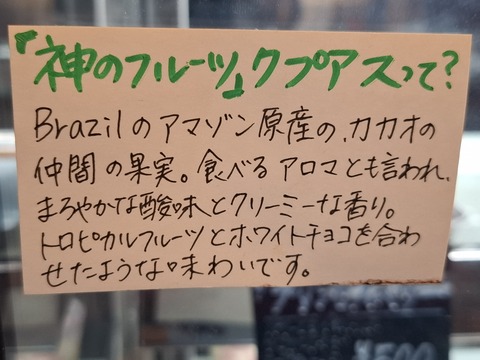 「神のフルーツ」クプアスって?
Brazilのアマゾン原産の、カカオの
仲間の果実。食べるアロマとも言われ、
まろやかな酸味とクリーミーな香り。
トロピカルフルーツとホワイトチョコを合わ
せたような味わいです。